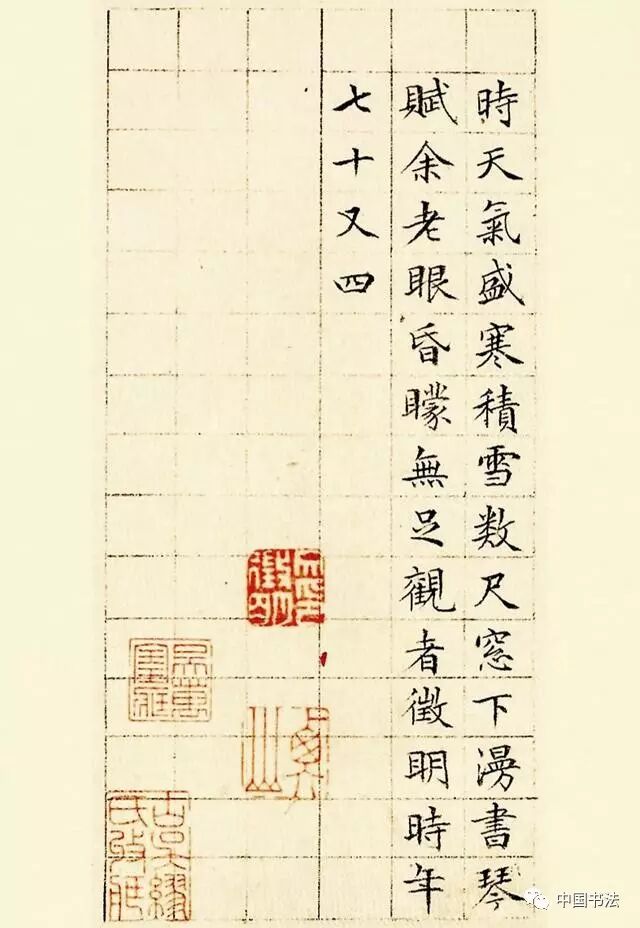 時天氣盛寒積雪数尺窓下漫書琴
賦余老眼昏矇無足觀者徵明時年
七十又四
徵明
中国书法